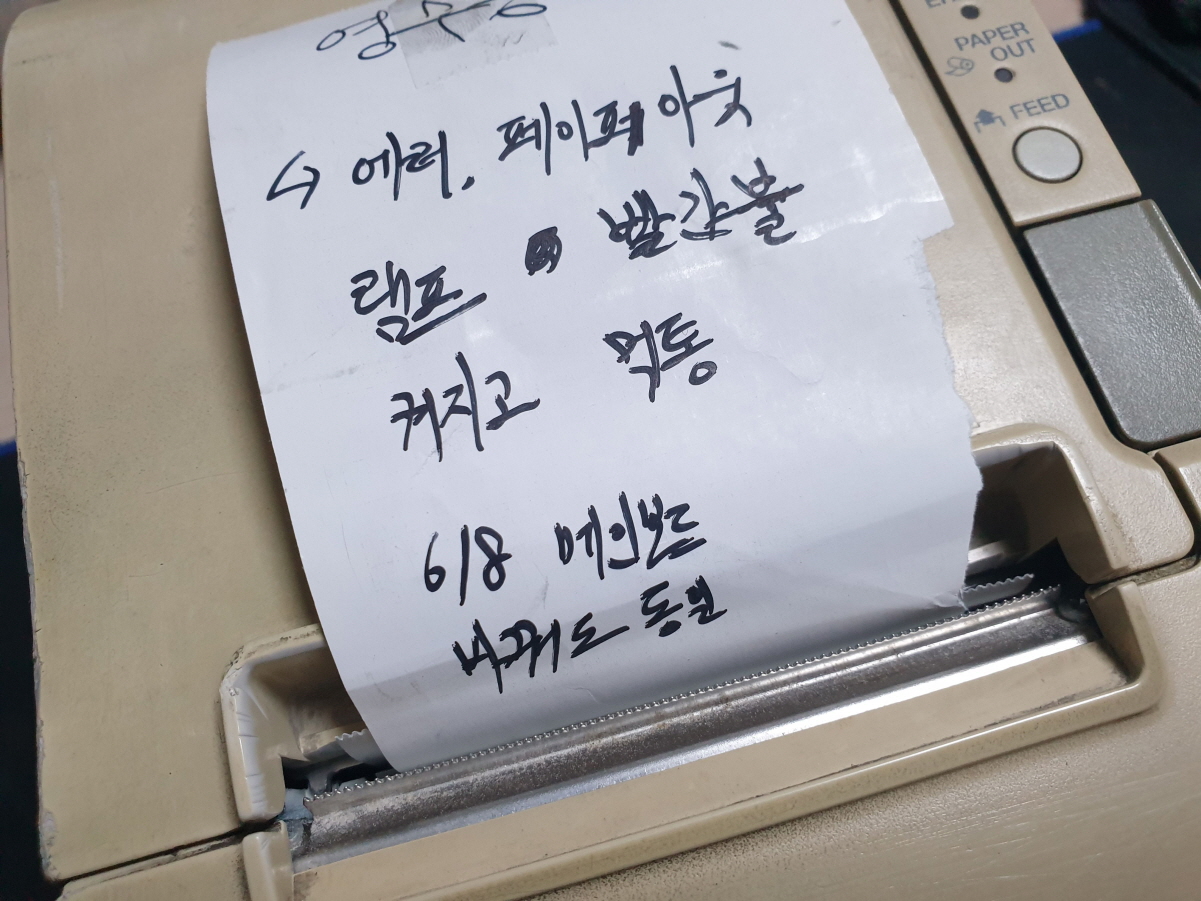 PAPER
OUT
FEED
↳ 에러, 페이퍼 아웃
램프 빨간불
켜지고 먹통
6/8 메인보드
바꿔도 동일